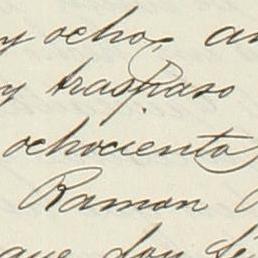 y ocho
y traspaso
ochocientos
Ramon
que don